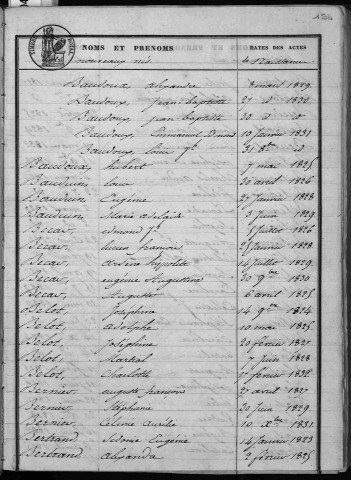 154
TIMBRE ROYAL
NOMS ET PRENOMS
DATES DES ACTES
nouveaux nés
de Naissance
Baudoux, alexandre 8 mars 1829
Baudoux, jean baptiste 27 d° 1830
Baudoux, jean baptiste 30 d° d°
Baudoux, Emmanuel 10 février 1831
Baudoux, louis 31 8bre d°
Baudoux, hubert 7 mai 1825
Baudouin, louis 30 avril 1826
Baudouin, Eugénie 27 janvier 1828
Baudouin, Marie adelaide 3 juin 1829
Becar, Edmond 5 juillet 1826
Becar, lucien françois 25 janvier 1828
Becar, arsène hippolite 14 juillet 1829
Becar, eugénie augustine 30 9bre 1830
Becar, Auguste 6 avril 1825
Belot, joséphine 14 9bre 1824
Belot, adolphe 10 mai 1825
Belot, joséphine 20 février 1827
Belot, Martial 7 juin 1828
Belot, Charlotte 17 février 1832
Bernier, auguste françois 27 avril 1827
Bernier, Stéphanie 30 juin 1829
Bernier, Céline aurélie 10 Xbre 1831
Bertrand, Sidonie Eugénie 14 janvier 1823
Bertrand, 2 février 1825